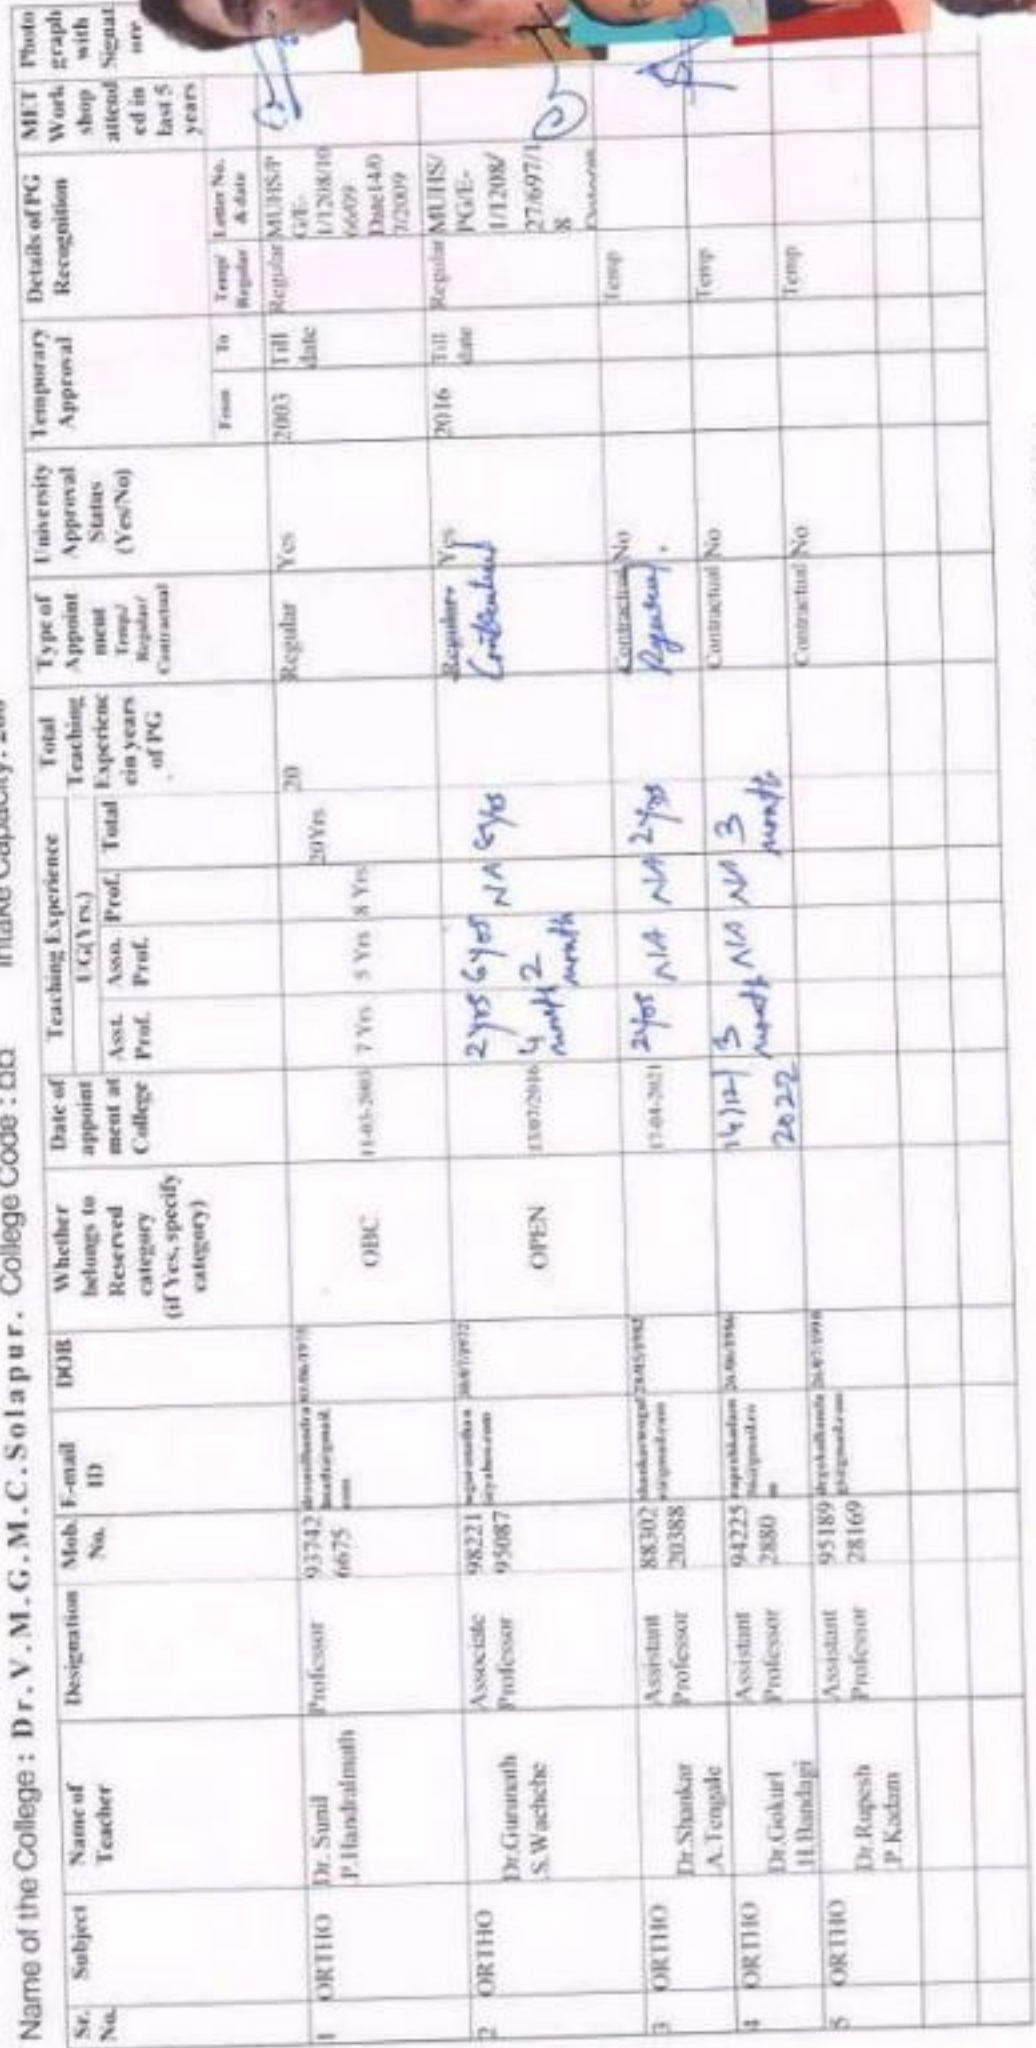 Name of the College : Dr. V.M.G.M.C. Solapur. College Code : Intake Capacity:
Sr. No. Subject Name of Teacher Designation Mob. No. E-mail ID DOB Whether belongs to Reserved category (if Yes, specify category) Date of appoint ment at College Teaching Experience UG(Yrs.) Total Teaching Experienc ein years of PG Type of Appoint ment Temp/ Regular/ Contractual University Approval Status (Yes/No) Temporary Approval Details of PG Recognition MET Work shop attend ed in last 5 years Photo graph with Signat ure
Asst. Prof. Asso. Prof. Prof. Total
From To Temp/ Regular Letter No. & date
1 ORTHO Dr. Sunil P.Handralmath Professor 93742 6675 OBC 11-03-2003 7 Yrs 5 Yrs 8 Yrs 20Yrs 20 Regular Yes 2003 Till date Regular MUHS/P G/E- 1/1208/10 6609 Date14/0 7/2009
2 ORTHO Dr.Gurunath S.Wachche Associate Professor 98221 95087 OPEN 13/07/2016 2yrs 4 month 6yrs 2 month NA Regular Contractual Yes 2016 Till date Regular MUHS/ PG/E- 1/1208/ 27697/1 8
3 ORTHO Dr.Shankar A.Tengale Assistant Professor 88302 20388 17-04-2021 2yrs NA NA 2yrs Contractual Regular. No Temp
4 ORTHO Dr.Gokurl H.Handagi Assistant Professor 94225 2880 14/12/ 2022 3 month NA NA 3 month Contractual No Temp
5 ORTHO Dr.Rupesh P.Kadam Assistant Professor 95189 28169 Contractual No Temp